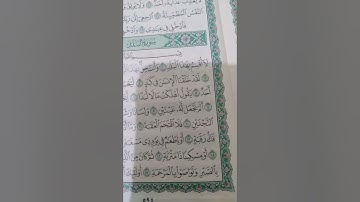 النَّفْسُ الْمُطْمَئِنَّةُ ۝ ارْجِعِي إِلَىٰ
فَادْخُلِي فِي عِبَادِي ۝ وَادْخُلِي
سُورَةُ الْبَلَدِ
لَا أُقْسِمُ بِهَٰذَا الْبَلَدِ ۝ وَأَنْتَ حِلٌّ بِهَٰذَا
لَقَدْ خَلَقْنَا الْإِنْسَانَ فِي كَبَدٍ ۝ أَيَحْسَبُ
أَحَدٌ ۝ يَقُولُ أَهْلَكْتُ مَالًا لُبَدًا
أَحَدٌ ۝ أَلَمْ نَجْعَلْ لَهُ عَيْنَيْنِ ۝ وَلِسَانًا
النَّجْدَيْنِ ۝ فَلَا اقْتَحَمَ الْعَقَبَةَ ۝
فَكُّ رَقَبَةٍ ۝ أَوْ إِطْعَامٌ فِي يَوْمٍ ذِي مَسْغَبَةٍ
أَوْ مِسْكِينًا ذَا مَتْرَبَةٍ ۝ ثُمَّ كَانَ مِنَ
بِالصَّبْرِ وَتَوَاصَوْا بِالْمَرْحَمَةِ ۝ أُولَٰئِكَ